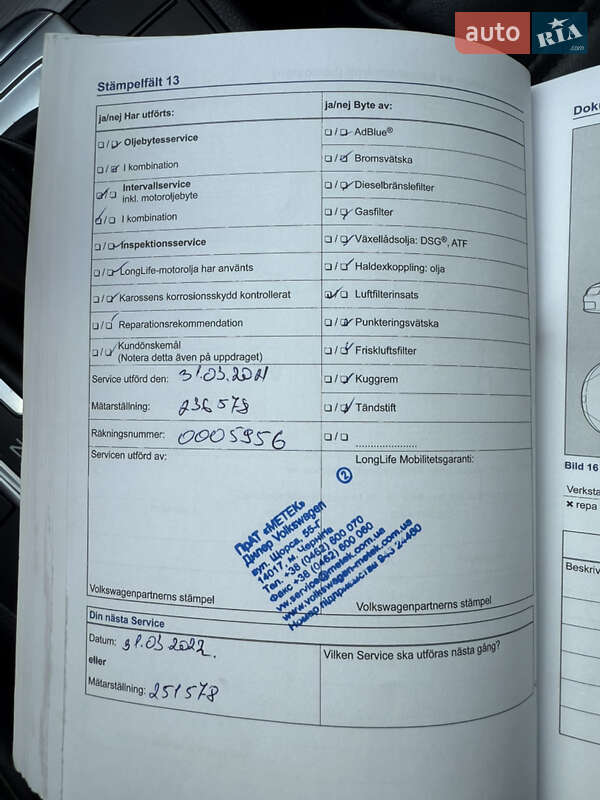 auto RIA.com
Stämpelfält 13
ja/nej Har utförts:
ja/nej Byte av:
Oljebytesservice
I kombination
Intervallservice
inkl. motoroljebyte
I kombination
Inspektionsservice
LongLife-motorolja har använts
Karossens korrosionsskydd kontrollerat
Reparationsrekommendation
Kundönskemål
(Notera detta även på uppdraget)
Service utförd den: 31.03.2021
Mätarställning: 236578
Räkningsnummer: 0005956
AdBlue®
Bromsvätska
Dieselbränslefilter
Gasfilter
Växellådsolja: DSG®, ATF
Haldexkoppling: olja
Luftfilterinsats
Punkteringsvätska
Friskluftsfilter
Kuggrem
Tändstift
Servicen utförd av:
LongLife Mobilitetsgaranti:
2
ПрАТ «МЕТЕК»
Дилер Volkswagen
вул. Щорса, 55-Г
14017, м. Чернігів
Тел. +38 (0462) 600 070
Факс +38 (0462) 600 060
vw.service@metek.com.ua
www.volkswagen-metek.com.ua
Номер підприємства
Volkswagenpartnerns stämpel
Volkswagenpartnerns stämpel
Din nästa Service
Datum: 31.03.2022.
eller
Mätarställning: 251578
Vilken Service ska utföras nästa gång?
Bild 16